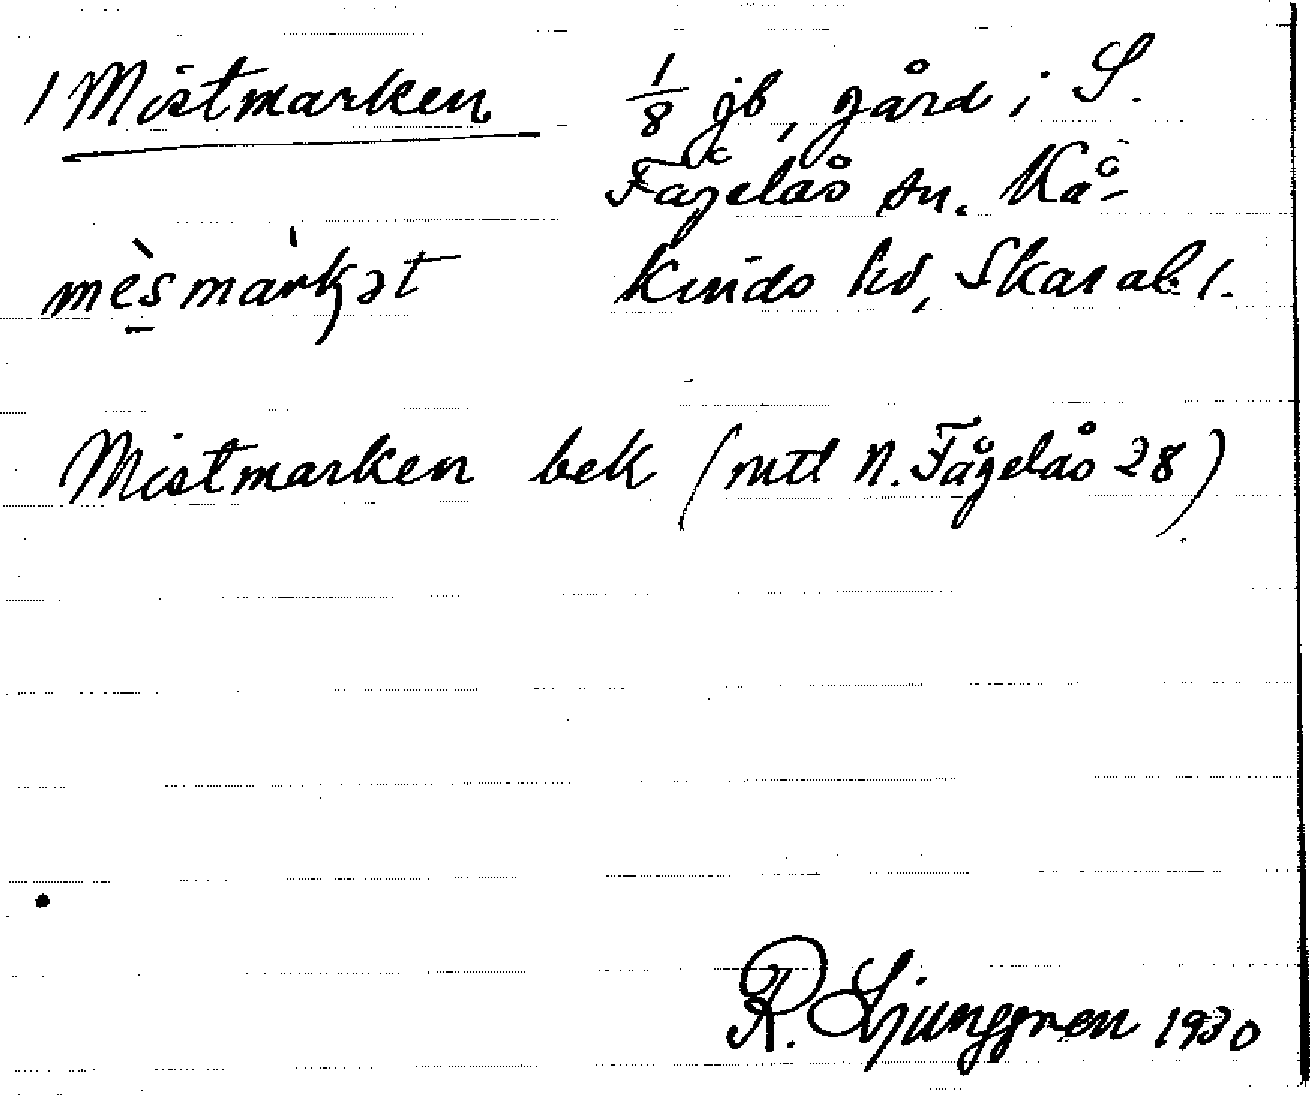 1 Mistmarken 1/8 jb, gård i S.
Fågelås sn. Kå-
kinds hd, Skarab. l.
mèsmárkət
Mistmarken bek (mtl N. Fågelås 28)
R. Ljunggren 1930